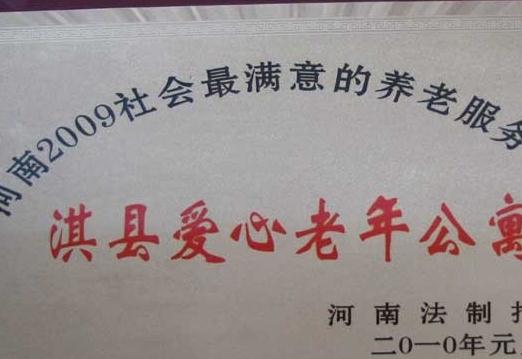 河南2009社会最满意的养老服务
淇县爱心老年公寓
河南法制报
二0一0年元